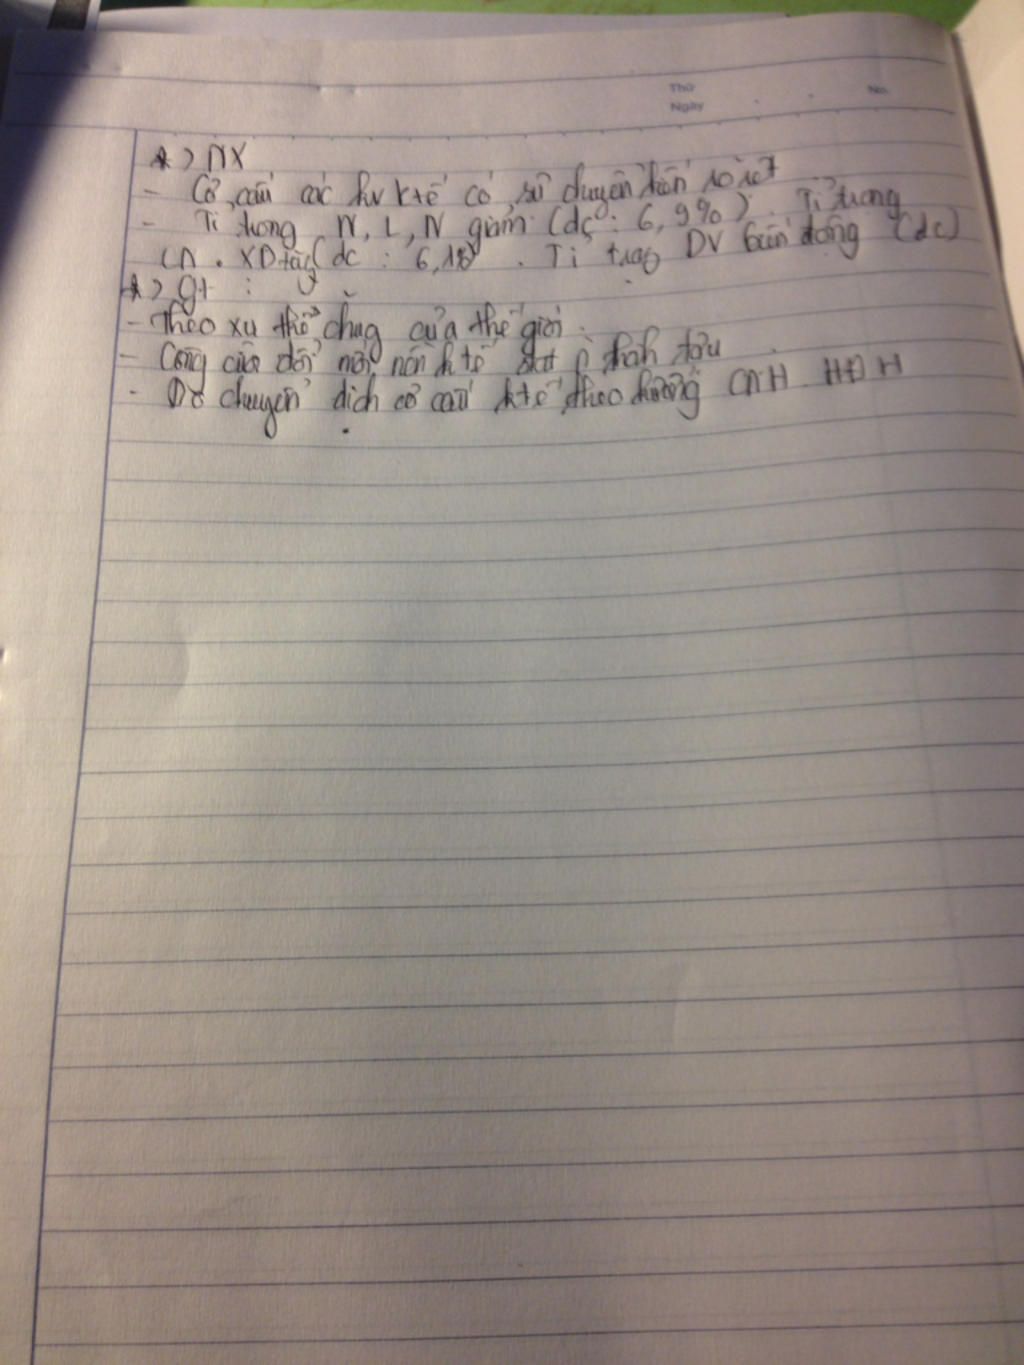 Thứ
Ngày
No.
*) NX
- Cơ cấu các kv ktế có sự chuyển biến rõ rệt
- Tỉ trọng N, L, N giảm (dc : 6,9%). Tỉ trọng
CN . XD tăng (dc : 6,18). Tỉ trọg DV biến động (dc)
*) gt :
- Theo xu thế chug của thế giới.
- Công cuộc đổi mới nền ktế thành tựu
- Do chuyển dịch cơ cấu ktế theo hướng CNH HĐH